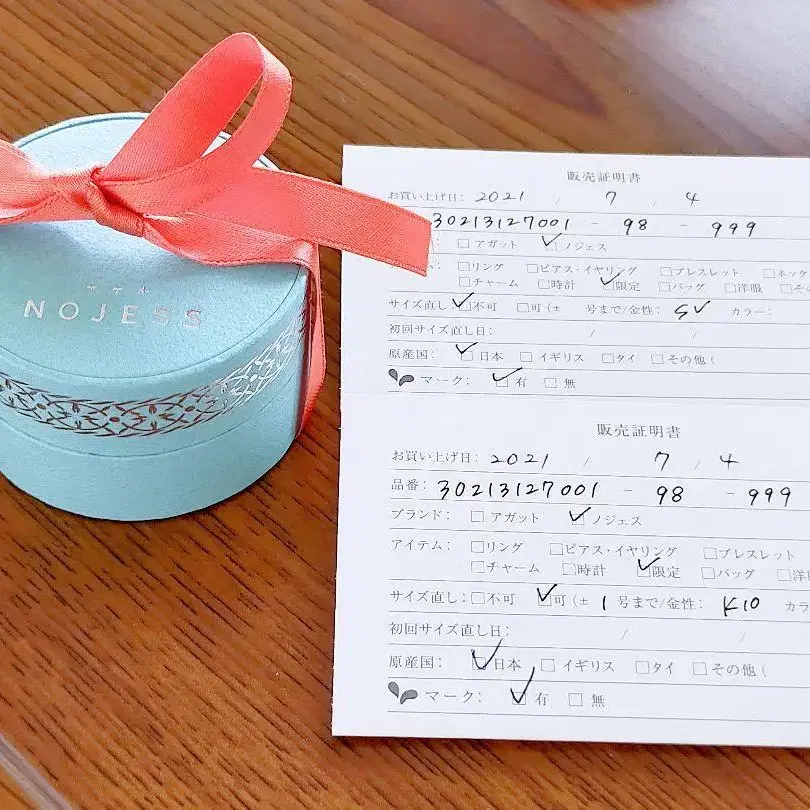 NOJESS
販売証明書
お買い上げ日: 2021 / 7 / 4
30213127001 - 98 - 999
□アガット ☑ノジェス
□リング □ピアス・イヤリング □ブレスレット □ネック
□チャーム □時計 ☑限定 □バッグ □洋服 □その
サイズ直し: ☑不可 □可(± 号まで/金性: SV カラー:
初回サイズ直し日: / /
原産国: ☑日本 □イギリス □タイ □その他(
マーク: ☑有 □無
販売証明書
お買い上げ日: 2021 / 7 / 4
品番: 30213127001 - 98 - 999
ブランド: □アガット ☑ノジェス
アイテム: □リング □ピアス・イヤリング □ブレスレット
□チャーム □時計 ☑限定 □バッグ □洋服
サイズ直し: □不可 ☑可(± 1 号まで/金性: K10 カラ
初回サイズ直し日: / /
原産国: ☑日本 □イギリス □タイ □その他(
マーク: ☑有 □無